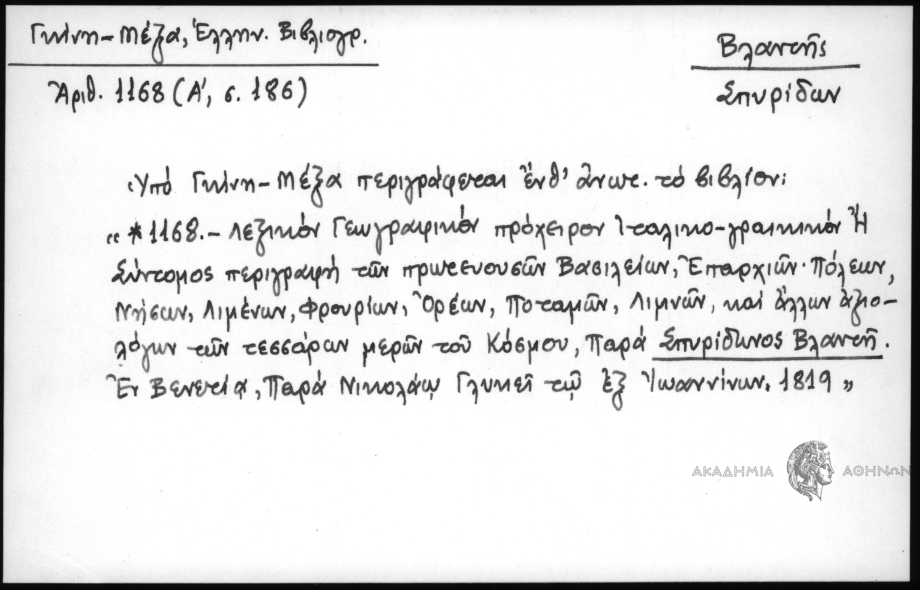 Γκίνη-Μέξα, Ἑλλην. Βιβλιογρ.
Ἀριθ. 1168 (Α', σ. 186)
Βλαντῆς
Σπυρίδων
Ὑπό Γκίνη-Μέξα περιγράφεται ἔνθ' ἀνωτ. τό βιβλίον:
«*1168.- Λεξικόν Γεωγραφικόν πρόχειρον Ἰταλικο-γραικικόν Ἤ
Σύντομος περιγραφή τῶν πρωτευουσῶν Βασιλείων, Ἐπαρχιῶν· Πόλεων,
Νήσων, Λιμένων, Φρουρίων, Ὀρέων, Ποταμῶν, Λιμνῶν, καί ἄλλων ἀξιο-
λόγων τῶν τεσσάρων μερῶν τοῦ Κόσμου, Παρά Σπυρίδωνος Βλαντῆ.
Ἐν Βενετίᾳ, Παρά Νικολάῳ Γλυκεῖ τῷ ἐξ Ἰωαννίνων. 1819»
ΑΚΑΔΗΜΙΑ ΑΘΗΝΩΝ